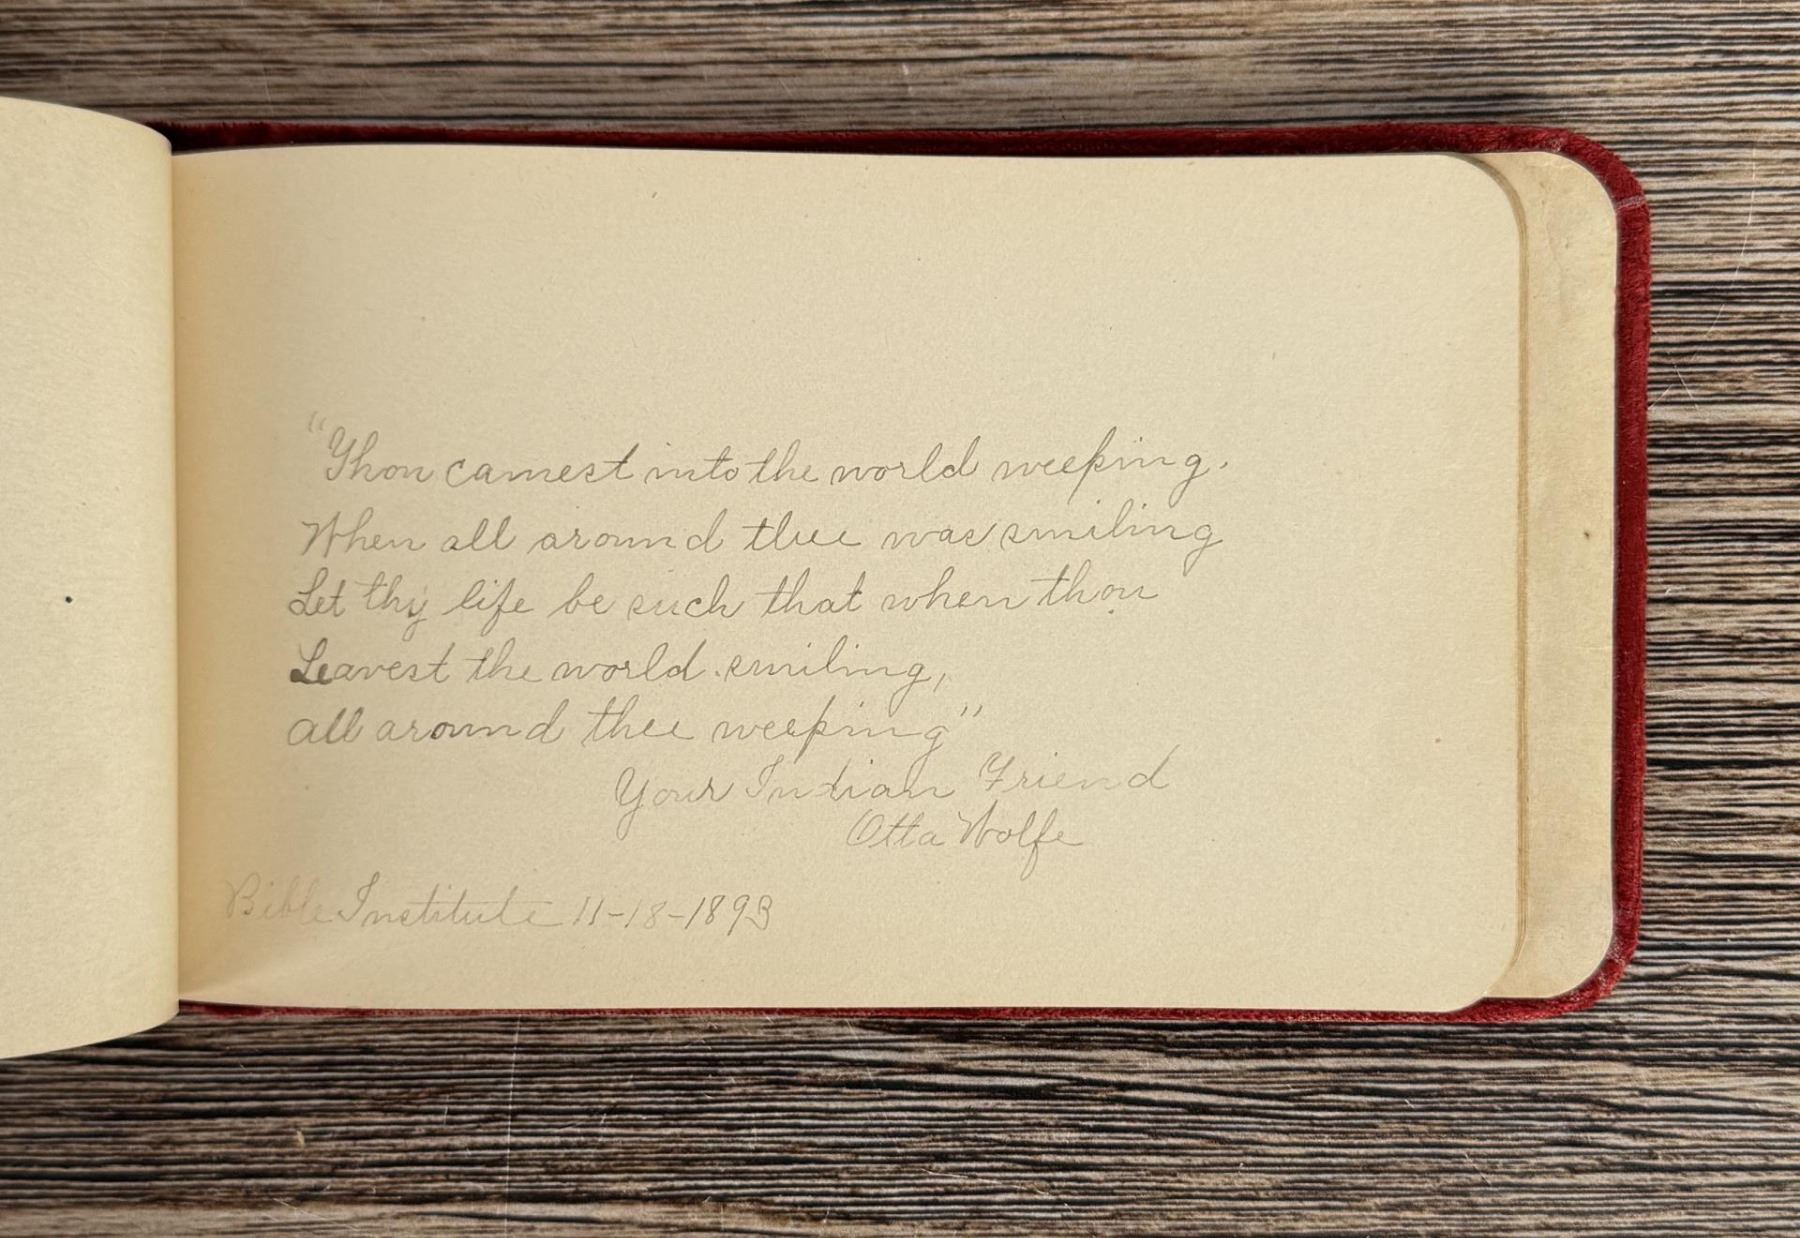 "Thou camest into the world weeping.
When all around thee was smiling
Let thy life be such that when thou
Leavest the world smiling,
all around thee weeping"
Your Indian Friend
Otta Wolfe
Bible Institute 11-18-1893